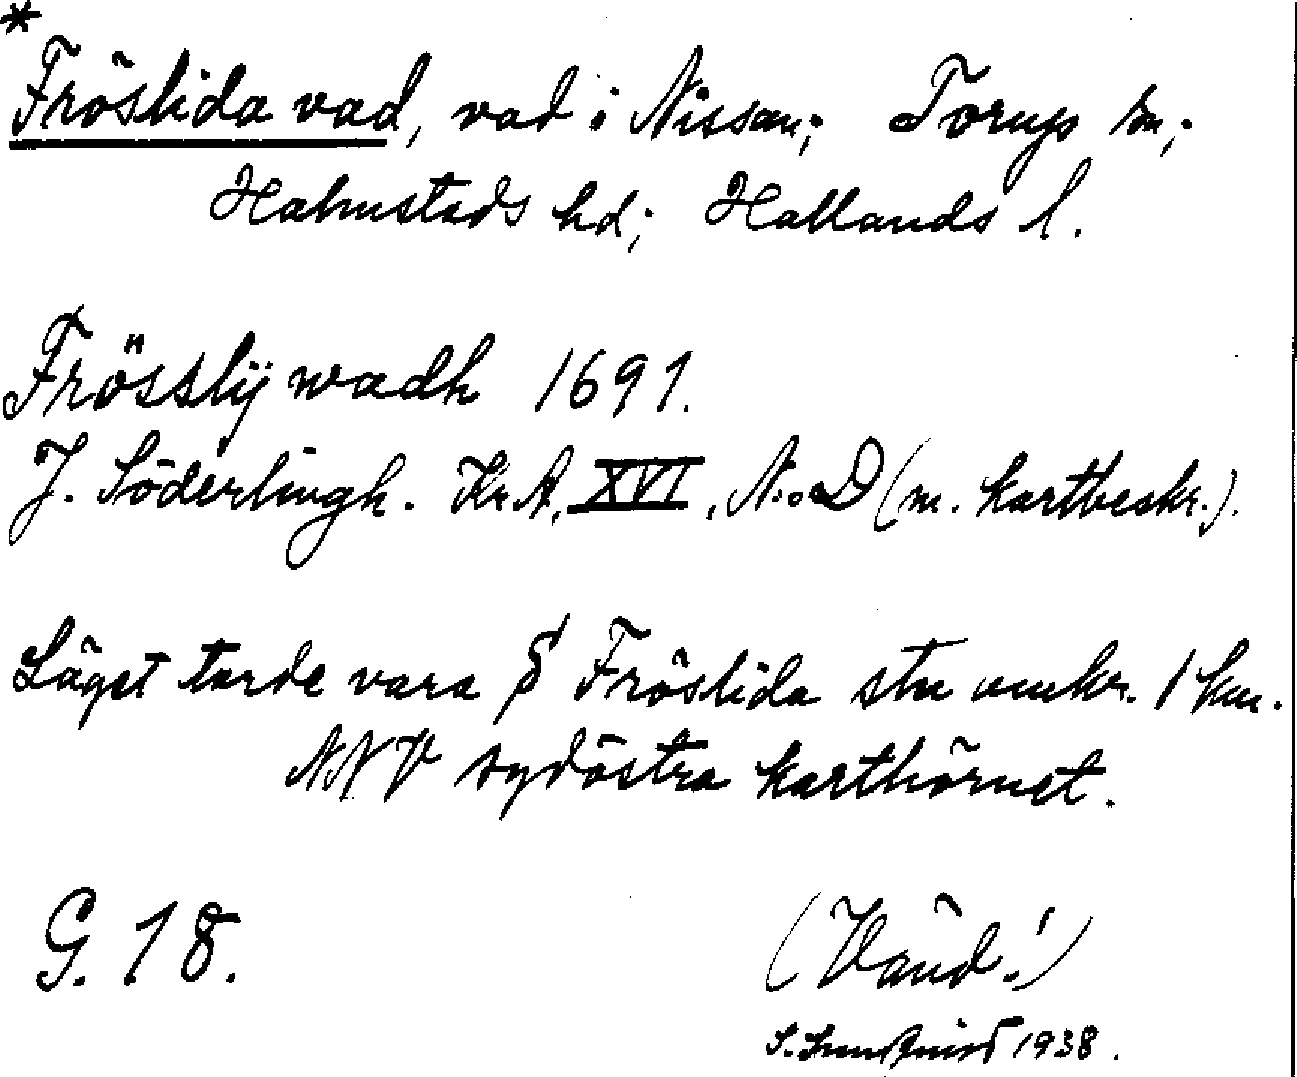 *
Fröslida vad, vad i Nissan; Torup sn;
Halmstads hd; Hallands l.
Frösslÿ wadh 1691.
J. Söderlingh. Kr.A. XVI, N:o D (m. kartbeskr.).
Läget torde vara § Fröslida stn omkr. 1 km.
NNV sydöstra karthörnet.
G. 18.
(Vänd!)
S. 1938.